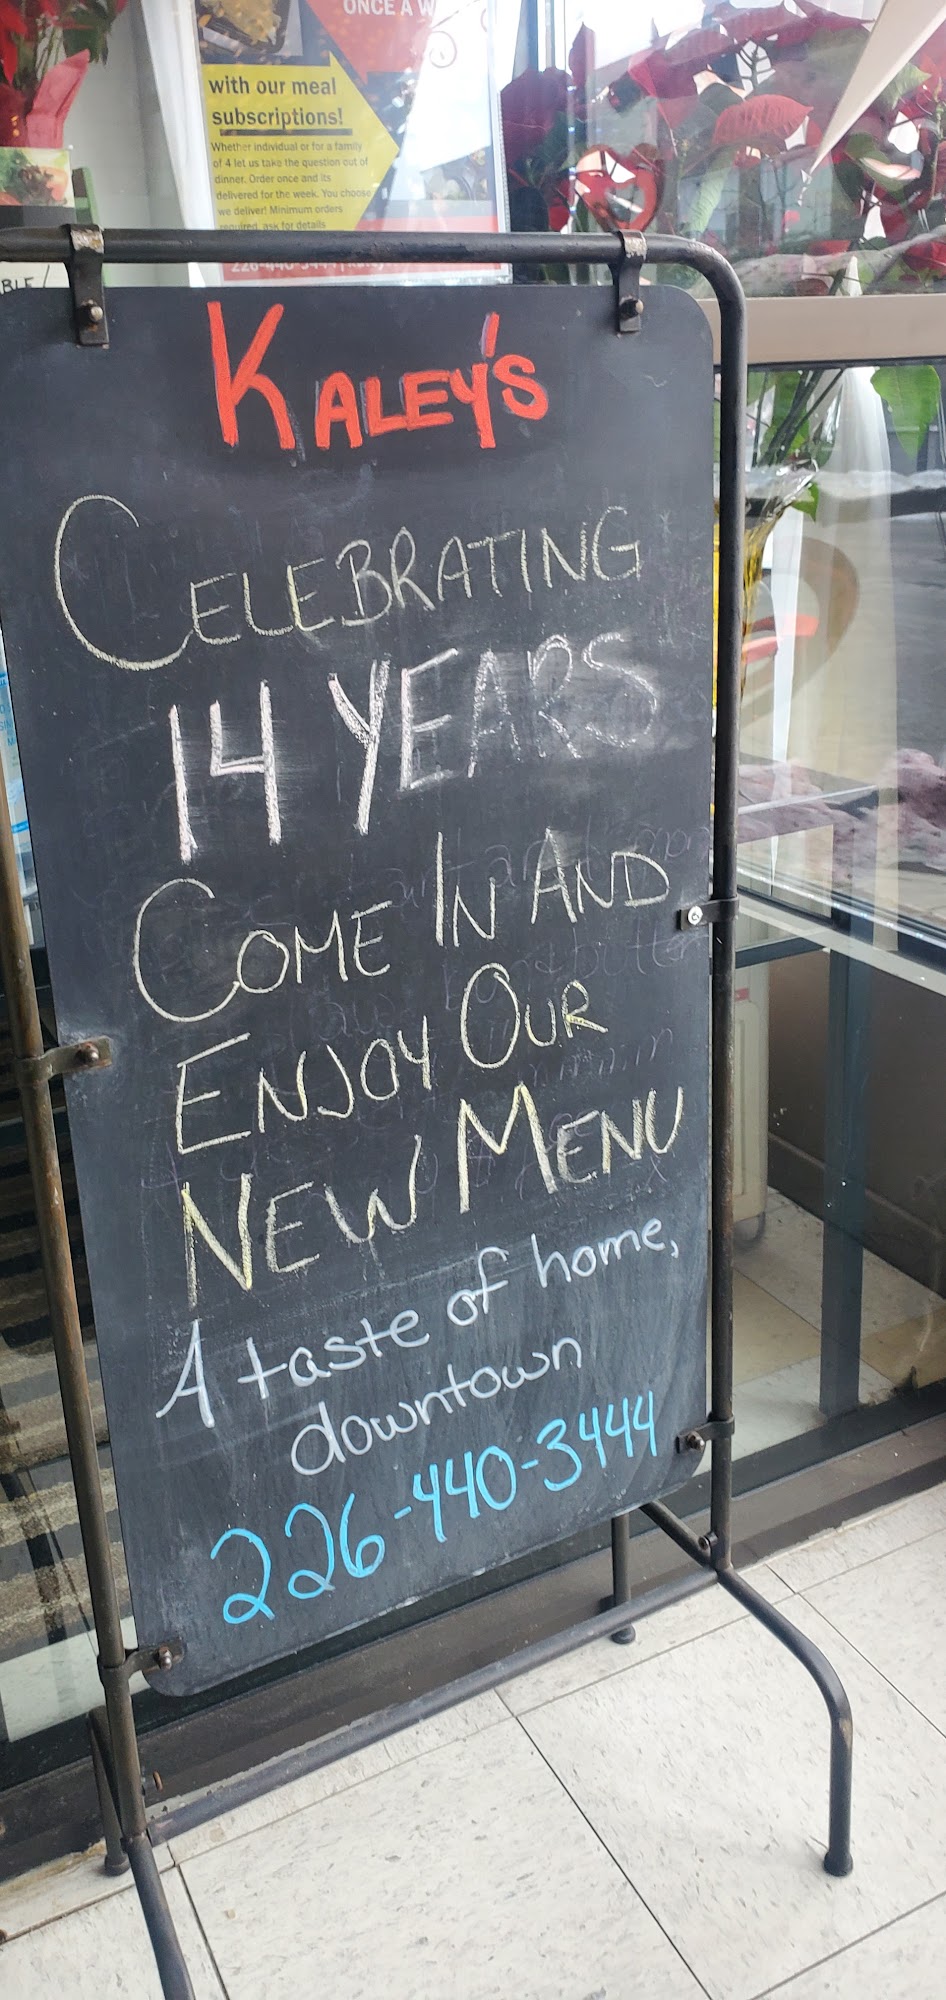 ONCE A
with our meal
subscriptions!
Whether individual or for a family
of 4 let us take the question out of
dinner. Order once and its
delivered for the week. You choose
we deliver! Minimum orders
required, ask for details
226-440-3444
KALEY'S
CELEBRATING
14 YEARS
COME IN AND
ENJOY OUR
NEW MENU
A taste of home,
downtown
226-440-3444